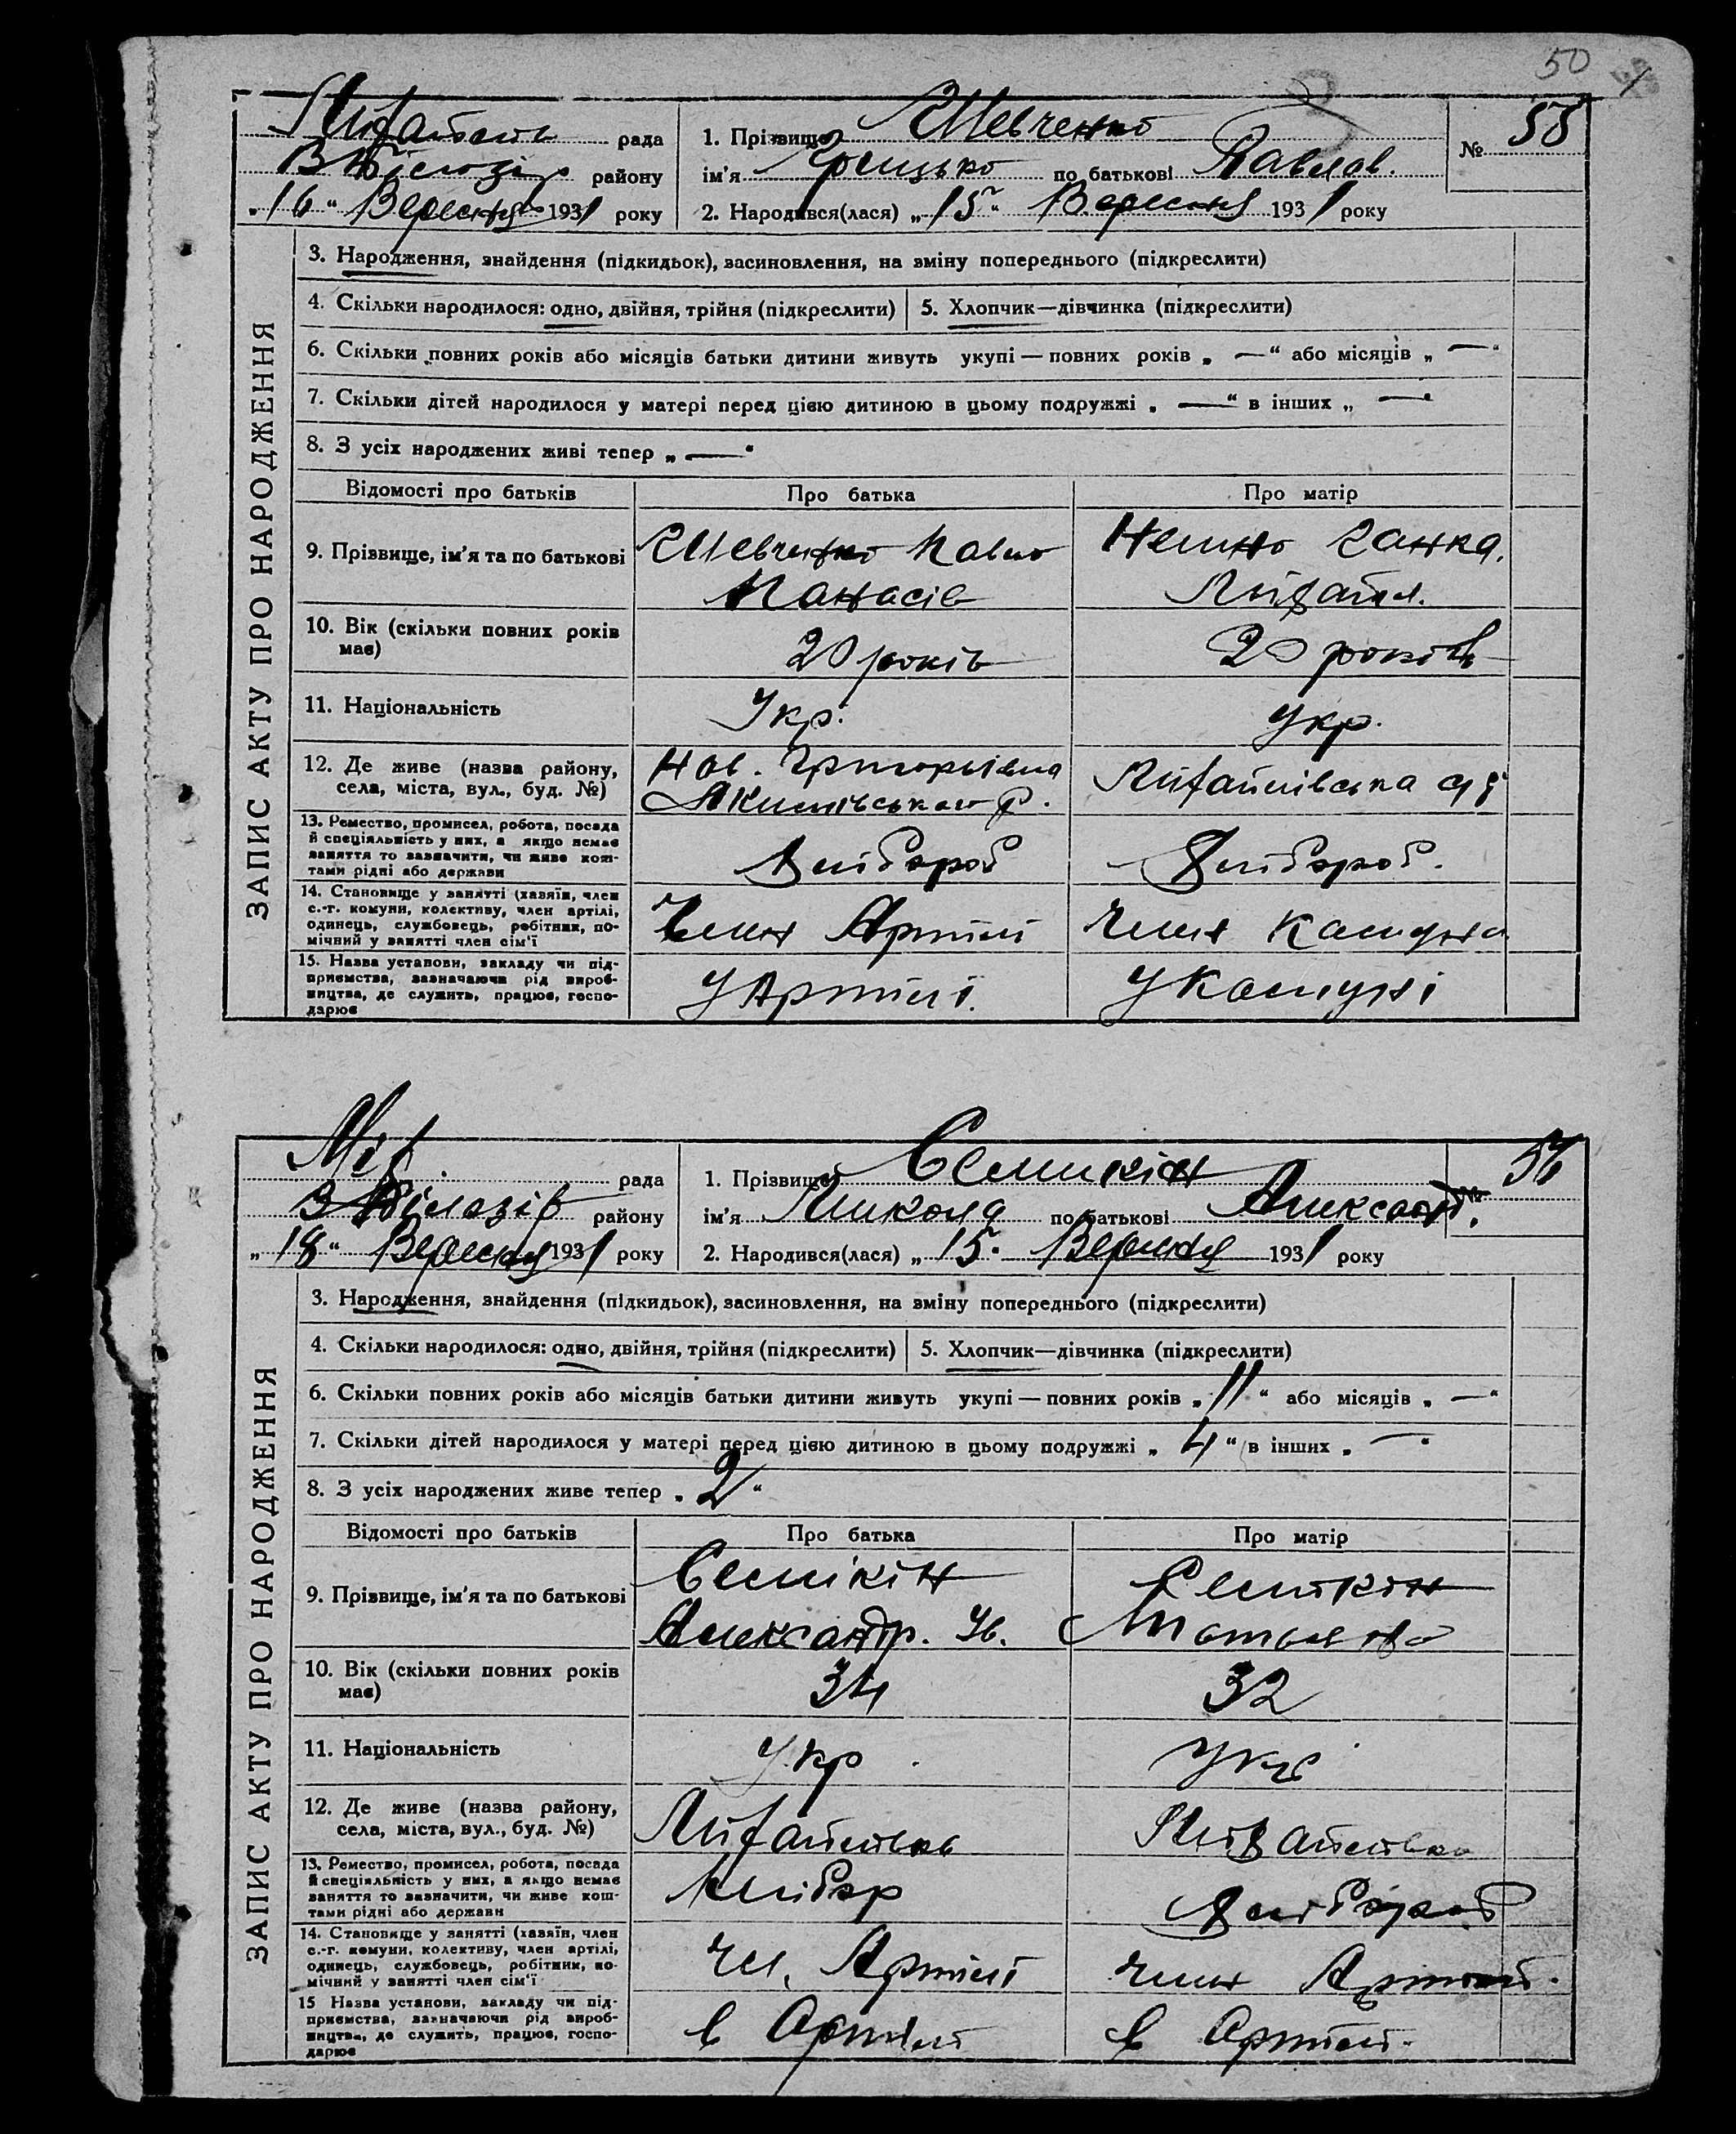 50
рада
1. Прізвище Шевченко
№ 55
району
ім'я Грицько по батькові Павлов.
„16“ Вересня 1931 року
2. Народився(лася) „15“ Вересня 1931 року
ЗАПИС АКТУ ПРО НАРОДЖЕННЯ
3. Народження, знайдення (підкидьок), засиновлення, на зміну попереднього (підкреслити)
4. Скільки народилося: одно, двійня, трійня (підкреслити)
5. Хлопчик—дівчинка (підкреслити)
6. Скільки повних років або місяців батьки дитини живуть укупі — повних років „ — “ або місяців „ — “
7. Скільки дітей народилося у матері перед цією дитиною в цьому подружжі „ — “ в інших „ — “
8. З усіх народжених живі тепер „ — “
Відомості про батьків
Про батька
Про матір
9. Прізвище, ім'я та по батькові
Шевченко Павло
Панасів
Ганна
10. Вік (скільки повних років
має)
20 років
20 років
11. Національність
Укр.
Укр.
12. Де живе (назва району,
села, міста, вул., буд. №)
Нов. Григорівна
13. Ремество, промисел, робота, посада
й спеціяльність у них, а якщо немає
заняття то зазначити, чи живе кош-
тами рідні або держави
Хлібороб
Хлібороб.
14. Становище у занятті (хазяїн, член
с.-г. комуни, колективу, член артілі,
одинець, службовець, робітник, по-
мічний у занятті член сім'ї
Член Артілі
член
15. Назва установи, закладу чи під-
приємства, зазначаючи рід вироб-
ництва, де служить, працює, госпо-
дарює
У Артілі.
У Комуні
рада
1. Прізвище Семикін
№ 56
району
ім'я Микола по батькові Александ.
„18“ Вересня 1931 року
2. Народився(лася) „15“ Вересня 1931 року
ЗАПИС АКТУ ПРО НАРОДЖЕННЯ
3. Народження, знайдення (підкидьок), засиновлення, на зміну попереднього (підкреслити)
4. Скільки народилося: одно, двійня, трійня (підкреслити)
5. Хлопчик—дівчинка (підкреслити)
6. Скільки повних років або місяців батьки дитини живуть укупі — повних років „11“ або місяців „ — “
7. Скільки дітей народилося у матері перед цією дитиною в цьому подружжі „4“ в інших „ — “
8. З усіх народжених живе тепер „2“
Відомості про батьків
Про батька
Про матір
9. Прізвище, ім'я та по батькові
Семікін
Александр. Ів.
Семікін
Татьяна
10. Вік (скільки повних років
має)
34
32
11. Національність
Укр
Укр
12. Де живе (назва району,
села, міста, вул., буд. №)
13. Ремество, промисел, робота, посада
й спеціяльність у них, а якщо немає
заняття то зазначити, чи живе кош-
тами рідні або держави
Хлібор
Хлібороб
14. Становище у занятті (хазяїн, член
с.-г. комуни, колективу, член артілі,
одинець, службовець, робітник, по-
мічний у занятті член сім'ї
чл. Артілі
член Артілі.
15 Назва установи, закладу чи під-
приємства, зазначаючи рід вироб-
ництва, де служить, працює, госпо-
дарює
в Артілі
в Артілі.